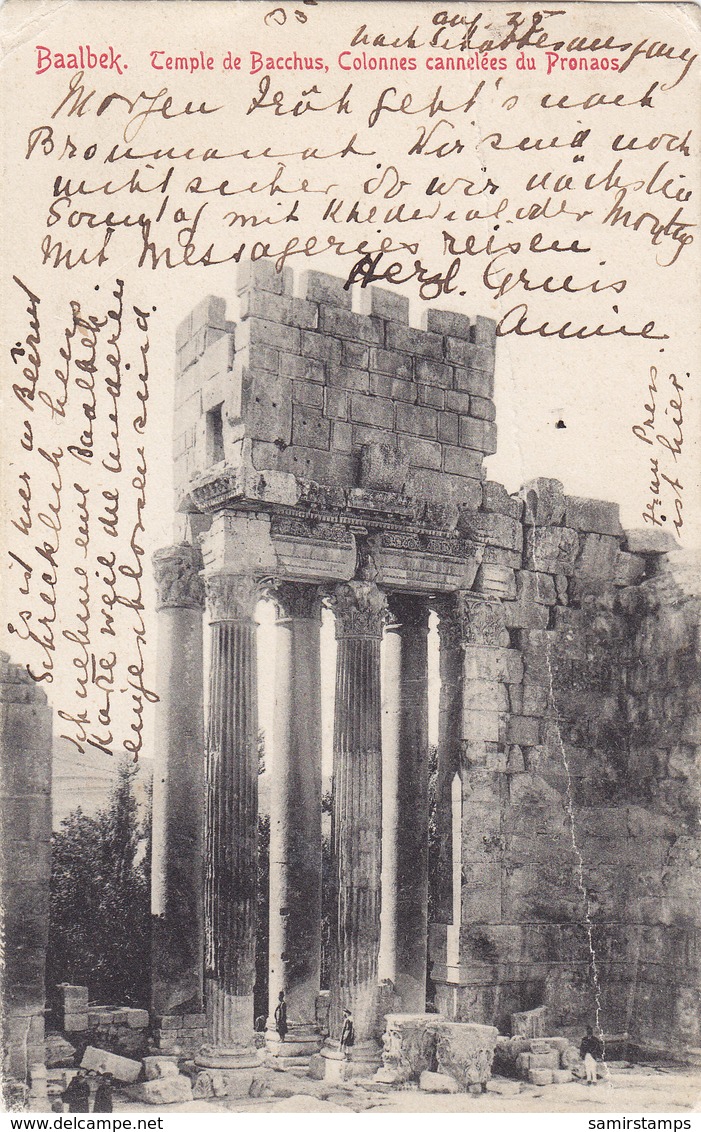 aug. 25
nach Schattensausgang
Baalbek. Temple de Bacchus, Colonnes cannelées du Pronaos.
Morgen Früh geht's nach
Broumanah Wir sind noch
nicht sicher ob wir nächsten
Sonntag mit Khedivial oder Montag
mit Messageries reisen
Herzl. Gruss
Annie
Es ist hier in Beirut
schrecklich heiss.
Ich nehme eine Baalbek
Karte weil die anderen
eingeschlossen sind.
Frau Preis
ist hier.
samirstamps